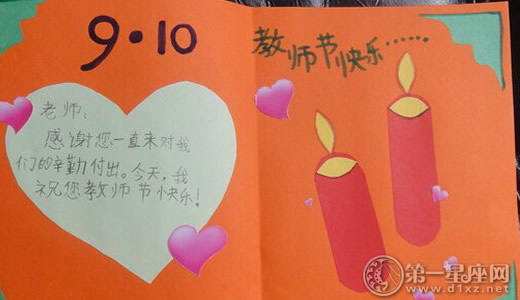 9·10
老师：
感谢您一直来对我
们的辛勤付出。今天，我
祝您教师节快乐！
教师节快乐……
第一星座网
www.d1xz.net